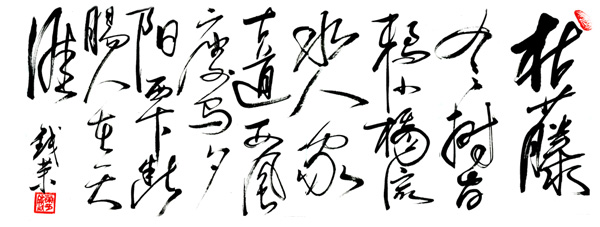 枯藤
老树昏
鸦小桥流
水人家
古道西风
瘦马夕
阳西下断
肠人在天
涯